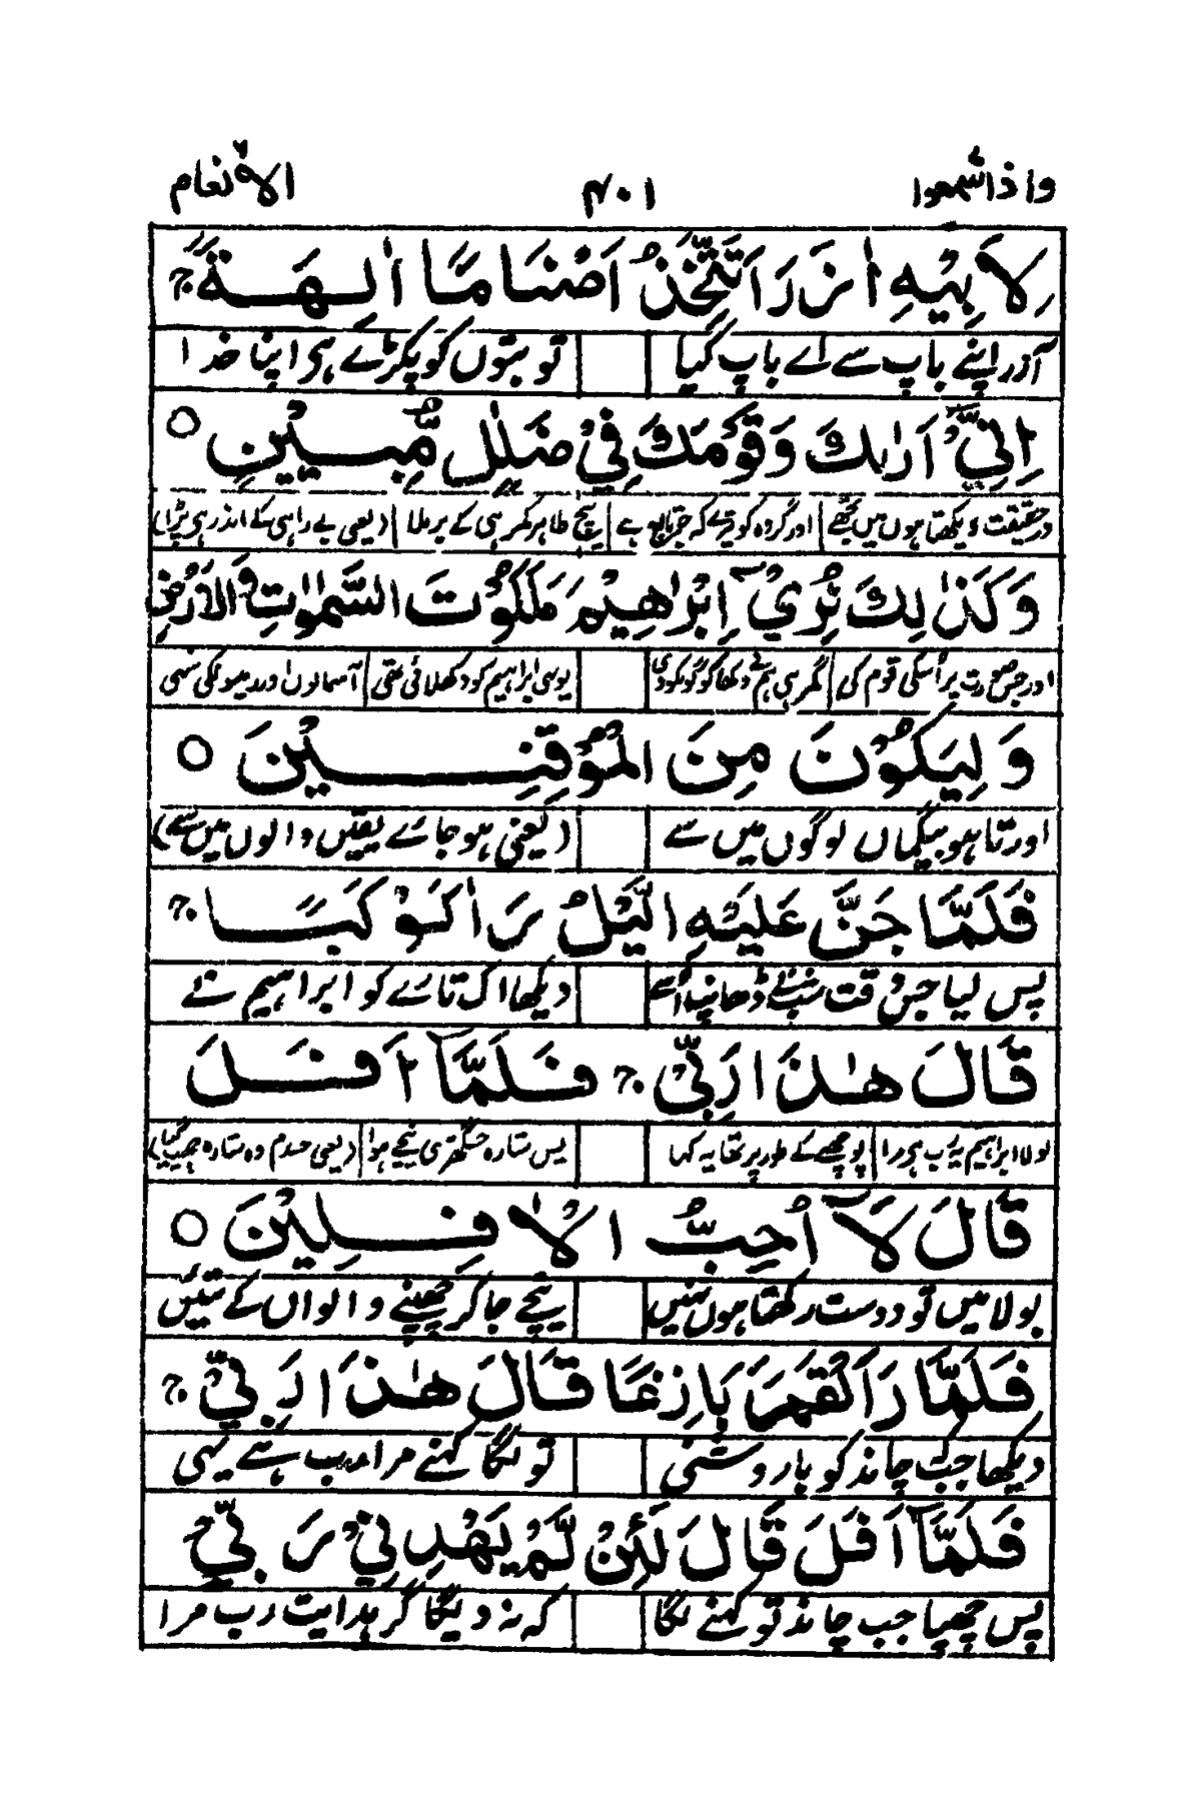 واذاسمعوا ۴۰۱ الانعام ۶
لِاَبِيْهِ اٰزَرَ اَتَتَّخِذُ اَصْنَامًا اٰلِهَةً ۚ
آذر اپنے باپ سے اے باپ کیا تو بتوں کو پکڑے ہے اپنا خدا
اِنِّيْٓ اَرٰىكَ وَقَوْمَكَ فِيْ ضَلٰلٍ مُّبِيْنٍ ○
درحقیقت دیکھتا ہوں میں تجھے اور گروہ کو تیرے کہ جو تابع ہے بیچ ظاہر گمرہی کے برملا (یعنی بے راہی کے اندر ہی پڑا)
وَكَذٰلِكَ نُرِيْٓ اِبْرٰهِيْمَ مَلَكُوْتَ السَّمٰوٰتِ وَالْاَرْضِ
اور جس صورت پر اُسکی قوم کی گمرہی ہم نے دکھا یوہی ابراہیم کو دکھلائی تھی آسمانوں اور
وَلِيَكُوْنَ مِنَ الْمُوْقِنِيْنَ ○
اور تا ہو بیگماں لوگوں میں سے (یعنی ہو جائے یقیں والوں میں سے)
فَلَمَّا جَنَّ عَلَيْهِ الَّيْلُ رَاٰ كَوْكَبًا ۚ
پس لیا جس وقت شب نے ڈھانپ اُسے دیکھا اک تارے کو ابراہیم نے
قَالَ هٰذَا رَبِّيْ ۚ فَلَمَّآ اَفَلَ
بولا ابراہیم یہ رب ہے مرا پوچھنے کے طور پر تھا یہ کہا پس ستارہ جس گھڑی نیچے ہوا (یعنی جسدم وہ ستارہ چھپ گیا)
قَالَ لَآ اُحِبُّ الْاٰفِلِيْنَ ○
بولا میں تو دوست رکھتا ہوں نہیں نیچے جا کر چھپنے والواں کے تئیں
فَلَمَّا رَاَ الْقَمَرَ بَازِغًا قَالَ هٰذَا رَبِّيْ ۚ
دیکھا جب چاند کو با روشنی تو لگا کہنے مرا رب ہے یہی
فَلَمَّآ اَفَلَ قَالَ لَئِنْ لَّمْ يَهْدِنِيْ رَبِّيْ
پس چھپا جب چاند تو کہنے لگا کہ نہ دیگا گر ہدایت رب مرا